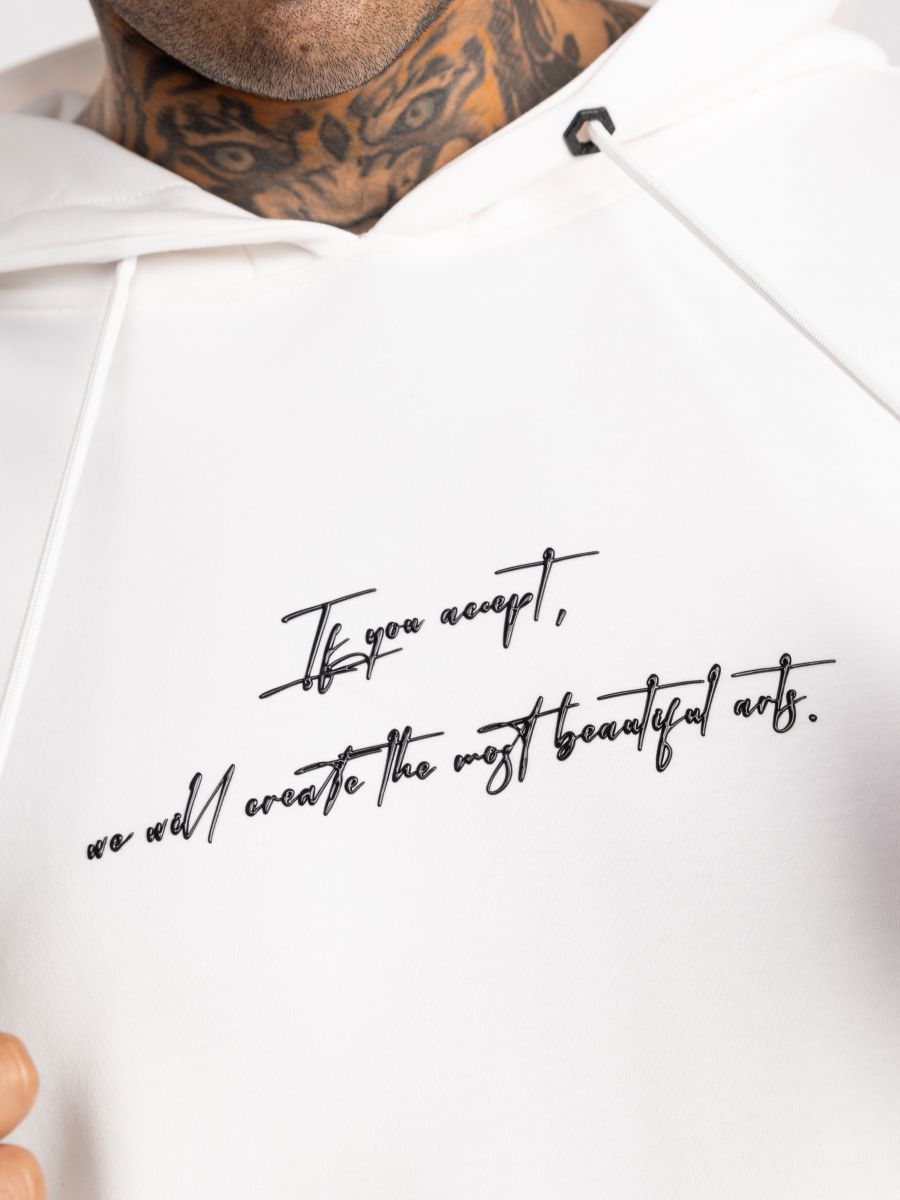 If you accept,
we will create the most beautiful arts.